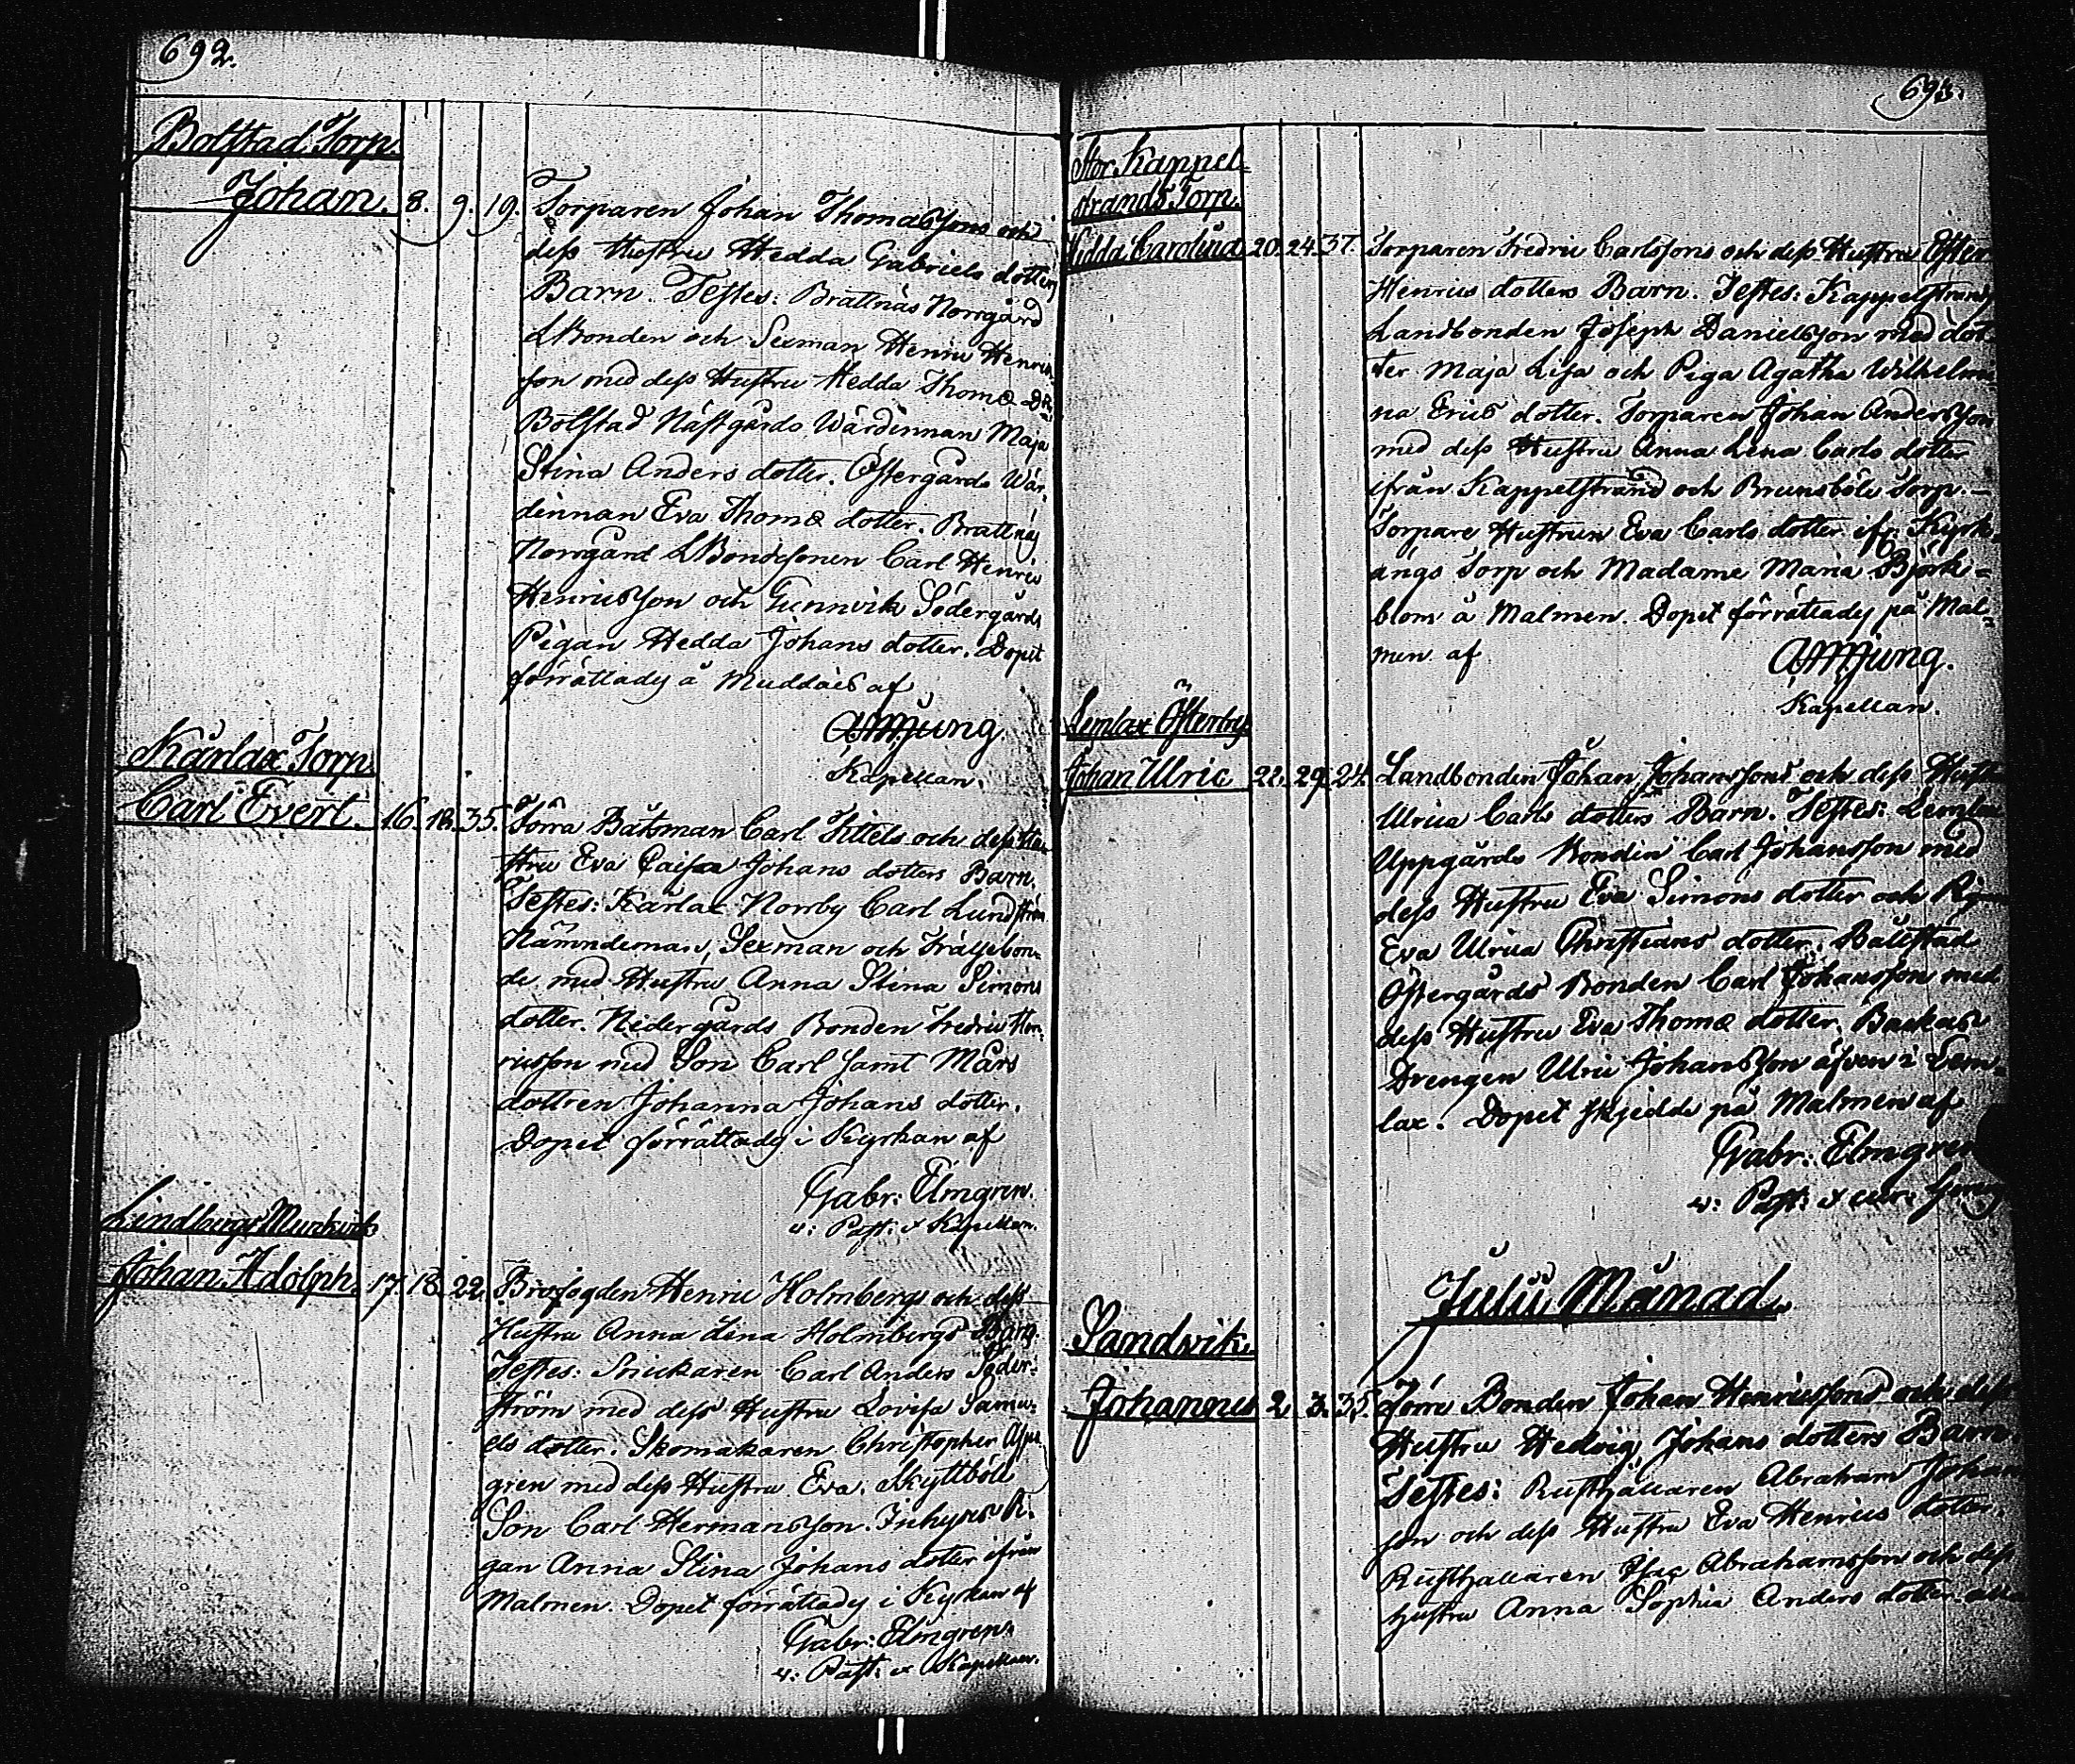 692.
Bolstad Torp.
Johan. 8. 9. 19. Torparen Johan Thomassons och
dess Hustru Hedda Gabriels dotters
Barn. Testes: Brattnäs Norrgård
LBonden och Sexman Henric Henric
son med dess Hustru Hedda Thomæ Dr
Bolstad Nästgårds Wärdinnan Maja
Stina Anders dotter. Östergårds Wär-
dinnan Eva Thomæ dotter. Brattnäs
Norrgård LBondesonen Carl Henric
Henricsson och Gunnvik Södergårds
Pigan Hedda Johans dotter. Dopet
förrättades å Muddais af
AMjung
Kapellan.
Kärlax Torp
Carl Evert. 16. 18. 35. Förra Båtsman Carl Fittels och dess Hu
stru Eva Caisa Johans dotters Barn.
Testes: Kärlax Norrby Carl Lundström
Nämndeman, Sexman och Frälsebon-
de med Hustru Anna Stina Simons
dotter. Nedergårds Bonden Fredric Hen-
ricsson med Son Carl samt Mårs
dottren Johanna Johans dotter.
Dopet förrättades i Kyrkan af
Gabr: Elmgren.
v: Past: & Kapellan.
Lindbergs
Johan Adolph. 17. 18. 22. Brofogden Henric Holmbergs och dess
Hustru Anna Lena Holmbergs Barn.
Testes: Snickaren Carl Anders Söder-
ström med dess Hustru Lovisa Samu-
els dotter. Skomakaren Christopher Aspe
gren med dess Hustru Eva. Skyttböle
Son Carl Hermansson. Inhyses Pi-
gan Anna Stina Johans dotter ifrån
Malmen. Dopet förrättades i Kyrkan af
Gabr: Elmgren.
v: Past: & Kapellan.
693.
Stor Kappel-
strands Torp.
Hedda Carolina 20. 24. 37. Torparen Fredric Carlssons och dess Hustru
Henrics dotters Barn. Testes: Kappelstrands
Landbonden Joseph Danielsson med dot-
ter Maja Lisa och Piga Agatha Wilhelmi
na Erics dotter. Torparen Johan Andersson
med dess Hustru Anna Lena Carls dotter
ifrån Kappelstrand och Brunsböle Torp. –
Torpare Hustrun Eva Carls dotter ifr: Kyrk-
ängs Torp och Madame Maria Björk-
blom å Malmen. Dopet förrättades på Mal-
men af AMjung.
Kapellan.
Lemlax Österby
Johan Ulric 22. 29. 24. Landbonden Johan Johanssons och dess Hustru
Ulrica Carls dotters Barn. Testes: Lemlax
Uppgårds Bonden Carl Johansson med
dess Hustru Eva Simons dotter och Pigan
Eva Ulrica Christians dotter. Bålstad
Östergårds Bonden Carl Johansson med
dess Hustru Eva Thomæ dotter. Backas
Drengen Ulric Johansson äfven i Lem-
lax. Dopet skjedde på Malmen af
Gabr: Elmgren
v: Past: & cur:
Julii Månad.
Sandvik.
Johannes 2. 3. 35. Förre Bonden Johan Henricssons och dess
Hustru Hedvig Johans dotters Barn.
Testes: Rusthållaren Abraham Johans
son och dess Hustru Eva Henrics dotter.
Rusthållaren Isac Abrahamsson och dess
Hustru Anna Sophia Anders dotter